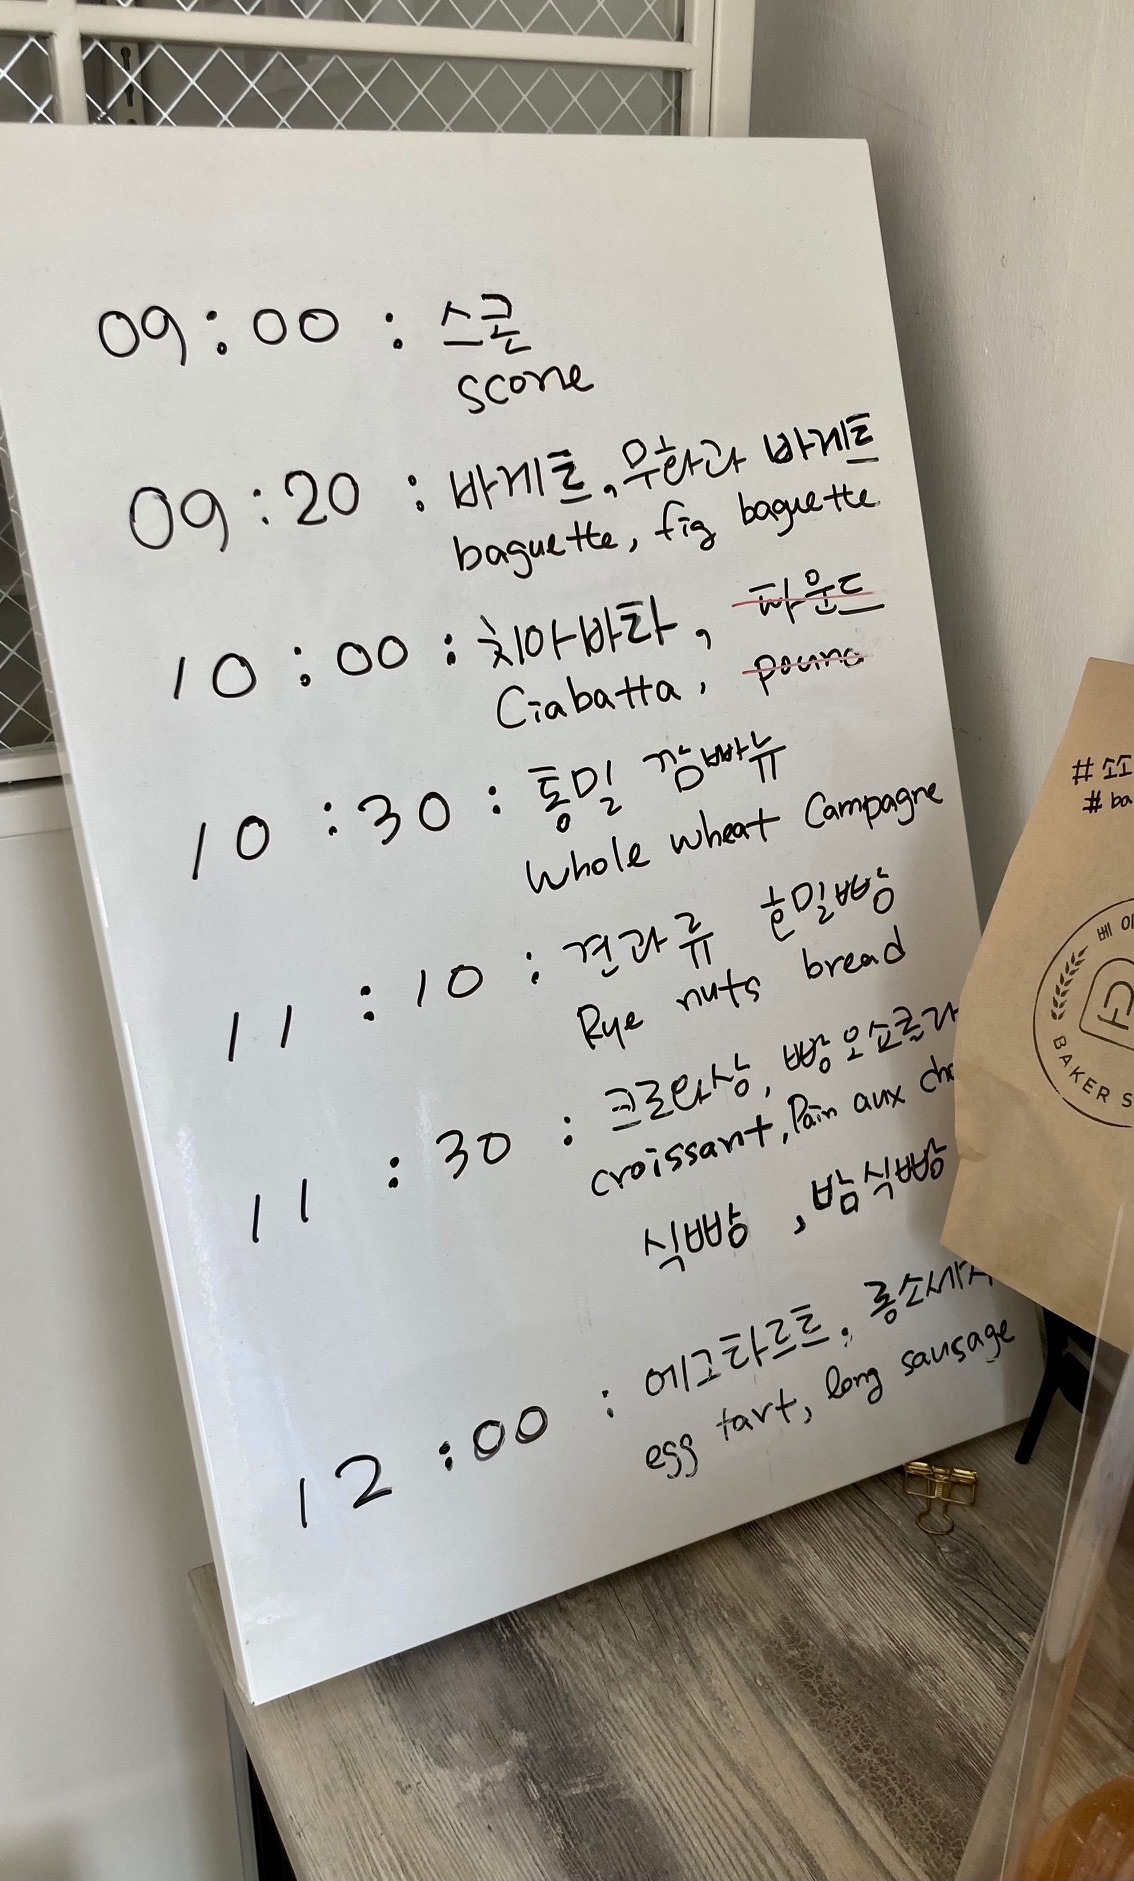 09:00 : 스콘
scone
09:20 : 바게트, 무화과 바게트
baguette, fig baguette
10:00 : 치아바타, 파운드
Ciabatta, pound
10:30 : 통밀 깜빠뉴
Whole wheat Campagne
11:10 : 견과류 호밀빵
Rye nuts bread
11:30 : 크로와상, 빵오쇼콜라
croissant, Pain aux cho
식빵, 밤식빵
12:00 : 에그타르트, 롱소세지
egg tart, long sausage
# 소소
# ba
베이
BAKER S